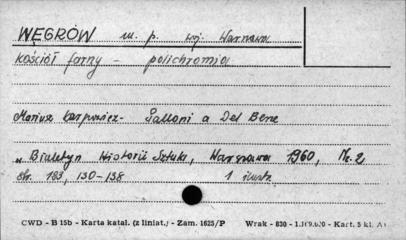 WĘGRÓW m. p. woj. Warszawa
kościół farny - polichromia
Mariusz Karpowicz - Palloni a Del Bene
"Biuletyn Historii Sztuki, Warszawa 1960, Nr. 2
str. 183, 130-138 1 ilustr.
CWD - B 15b - Karta katal. (z liniat.) - Zam. 1625/P Wzak - 830 - Kart. 5 kl.